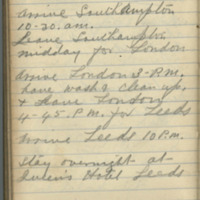 Arrive Southampton
10-30. a.m.
Leave Southampton
midday for London
Arrive London 3-P.M.
have wash & clean up,
& leave London
4-45. P.M. for Leeds
Arrive Leeds 10 P.M.
Stay overnight at
Queen's Hotel Leeds